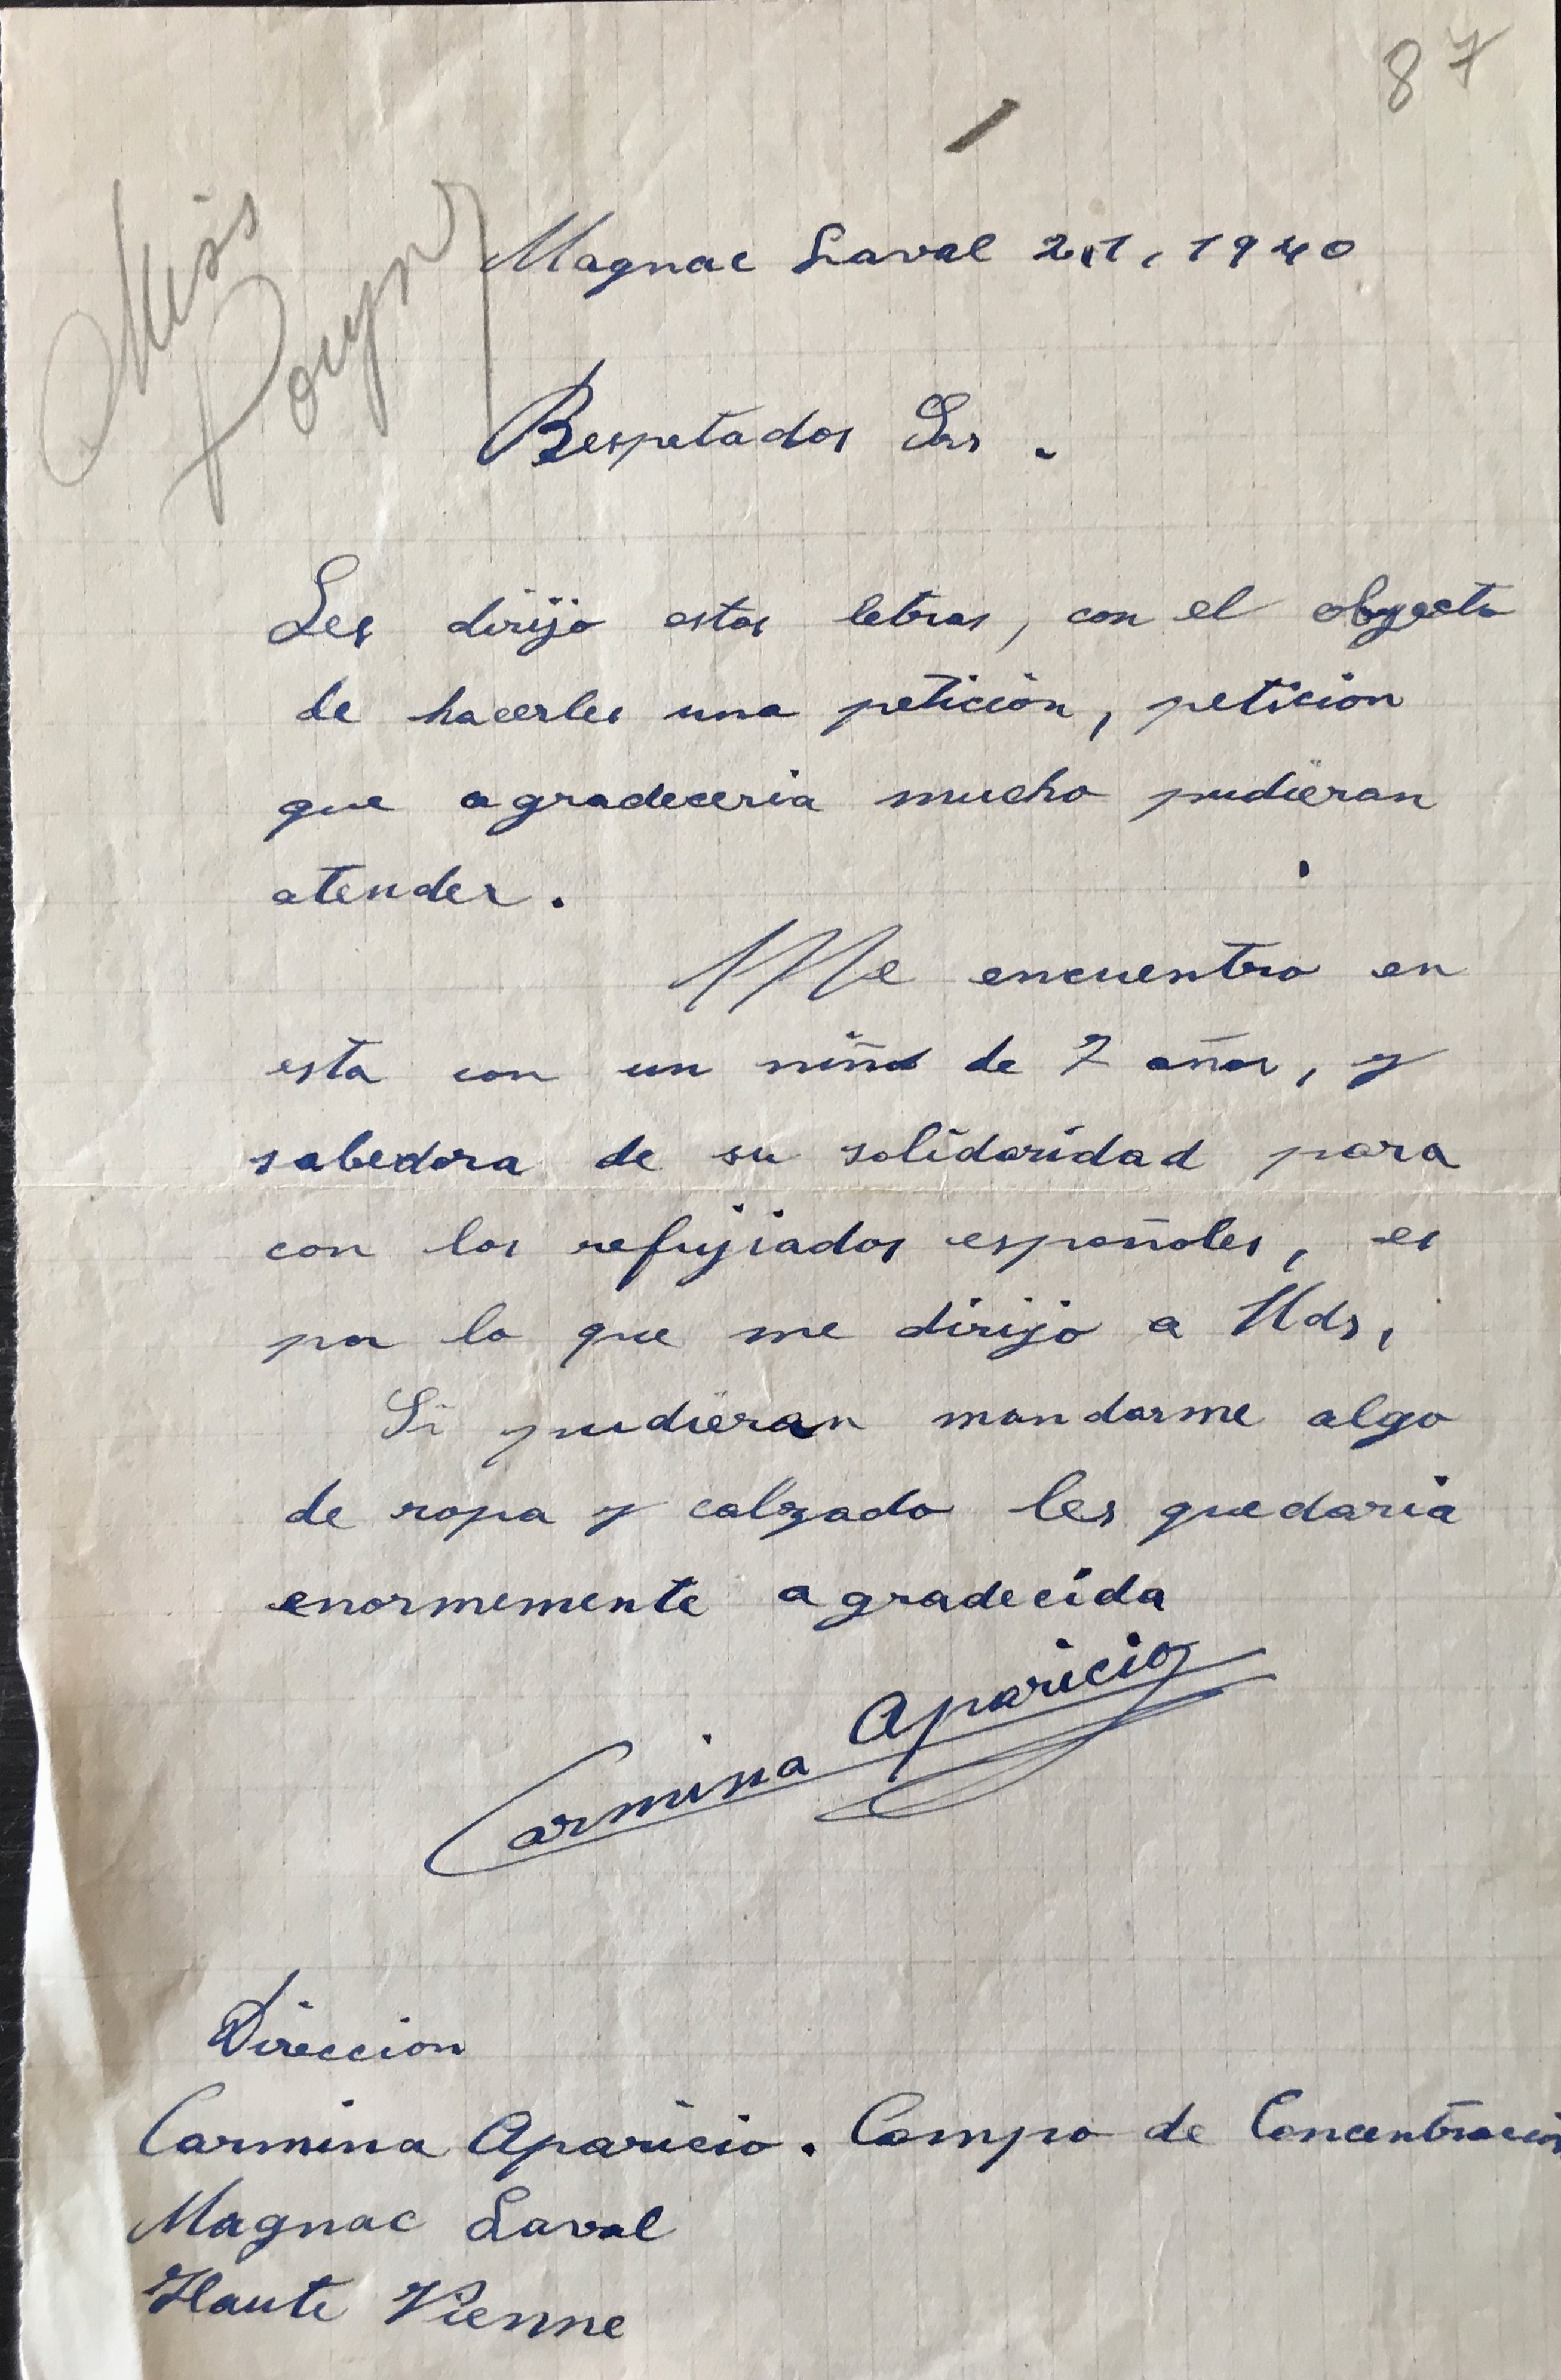 87
Miss
Magnac Laval 2,1, 1940
Respetados Srs.
Les dirijo estas letras, con el obgecto
de hacerles una petición, peticion
que agradeceria mucho pudieran
atender.
Me encuentro en
esta con un niño de 7 años, y
sabedora de su solidaridad para
con los refujiados españoles, es
por lo que me dirijo a Uds,
Si pudieran mandarme algo
de ropa y calzado les quedaria
enormemente agradecida
Carmina Aparicio
Direccion
Carmina Aparicio. Campo de Concentracion
Magnac Laval
Haute Vienne